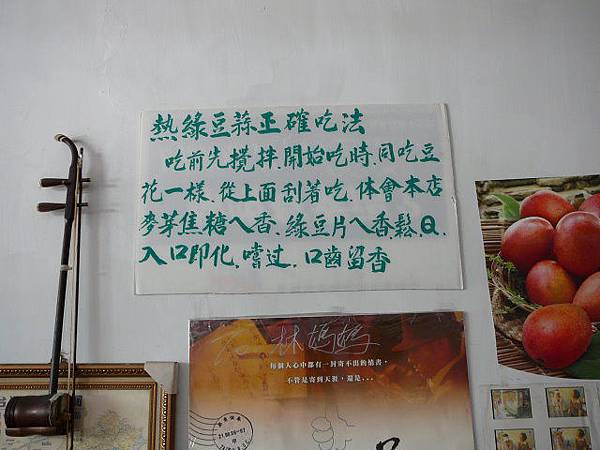 熱綠豆蒜正確吃法
吃前先攪拌.開始吃時.同吃豆
花一樣.從上面刮著吃.体會本店
麥芽焦糖ㄟ香.綠豆片ㄟ香.鬆.Q.
入口即化.嚐过.口齒留香
林媽媽
每個人心中都有一封寄不出的情書，
不管是寄到天涯，還是...